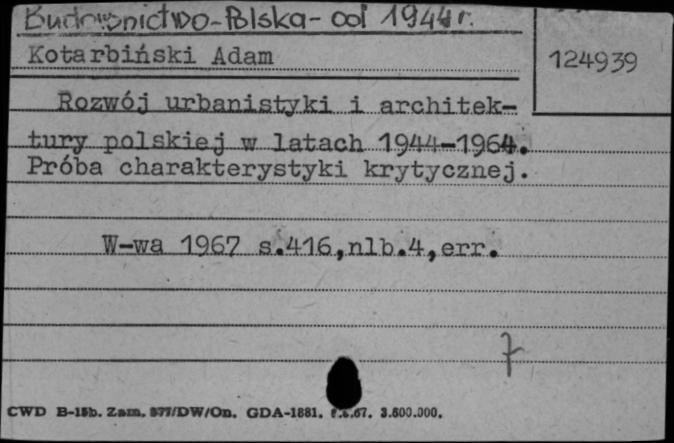 Budownictwo-Polska- od 1944 r.
Kotarbiński Adam
124939
Rozwój urbanistyki i architek-
tury polskiej w latach 1944-1964.
Próba charakterystyki krytycznej.
W-wa 1967 s.416,nlb.4,err.
7
CWD B-15b. Zam. 577/DW/On. GDA-1881. .67. 3.600.000.